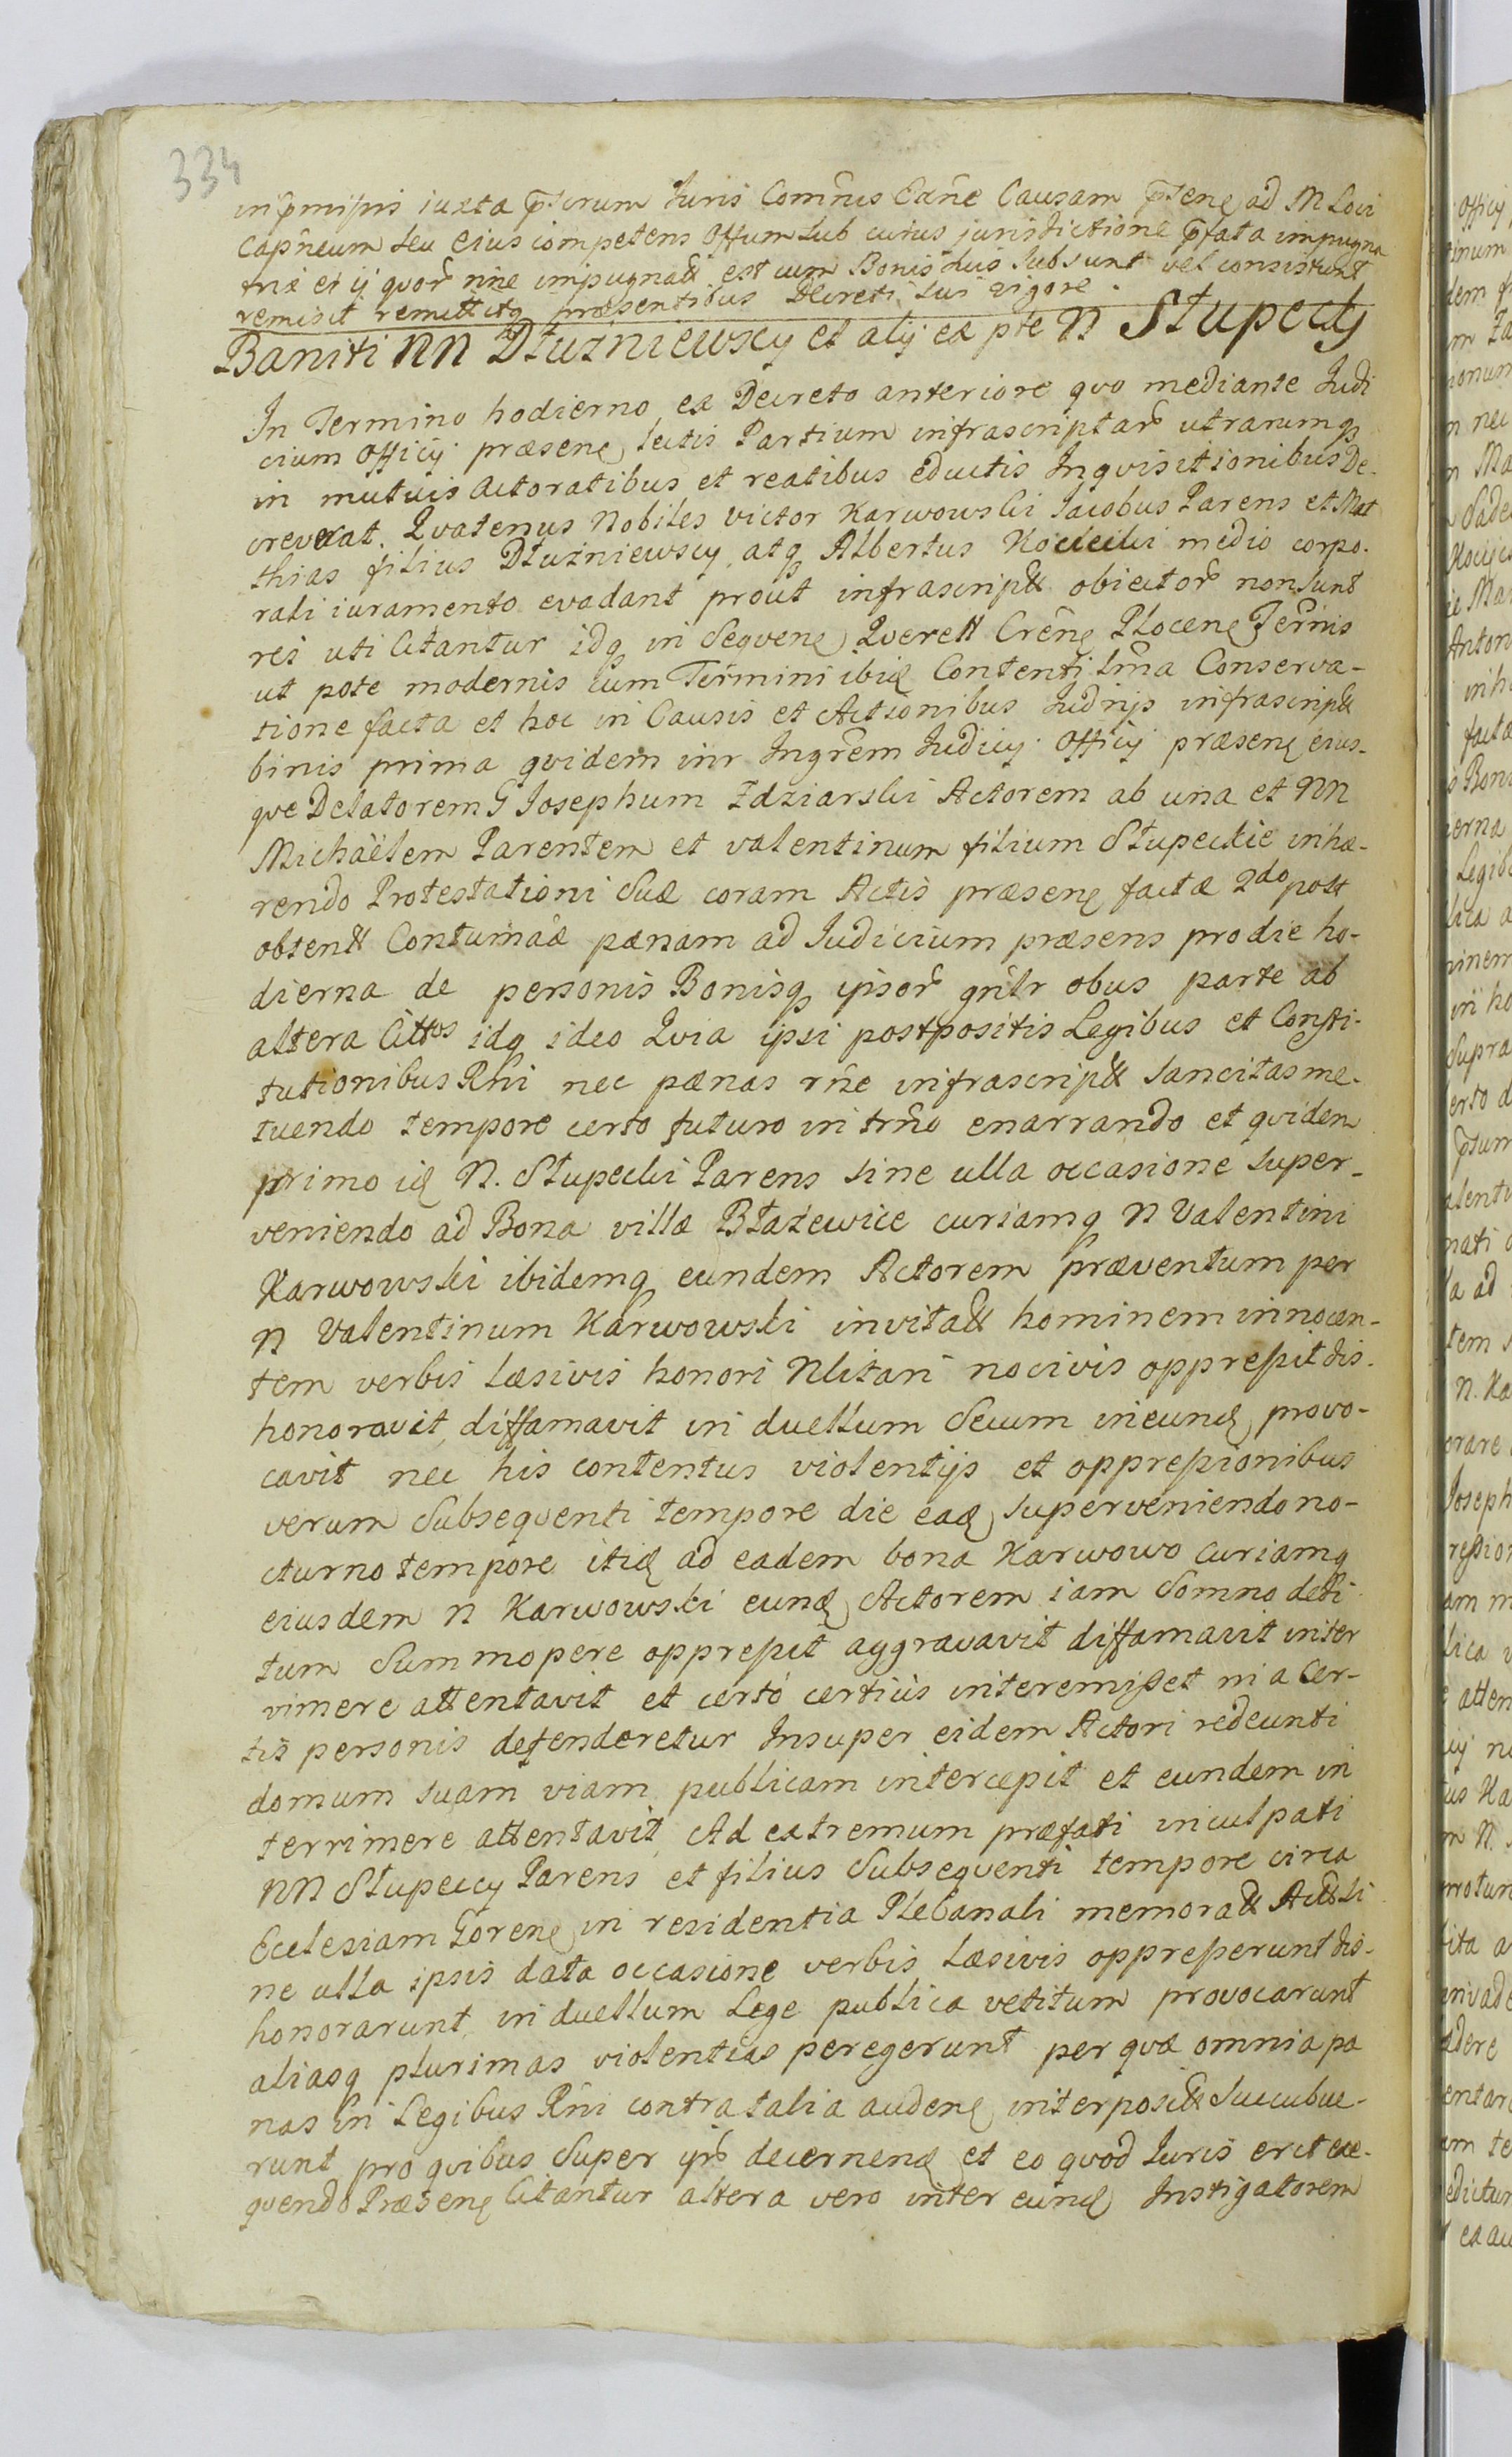 334
in pmissis iuxta pterum Iuris Comnis Exne Causam pntem ad M Loci
Capneum seu eius competens Offum sub cuius jurisdictione pfata impugna
tnis et ij quor nne impugnatt est cum Bonis suis subsunt vel consistunt
remisit remittitq præsentibus Decreti sui vigore.
Baniti NN Dłużniewscy et alij ex pte N Słupecky
In Termino hodierno ex Decreto anteriore quo mediante Iudi
cium Officij præsens lectis Partium infrascriptar utrarumq
in mutuis actoratibus et reatibus eductis Inquisitionibus De-
creverat. Quatenus Nobiles Victor Karwowski Iacobus Parens et Mat
thias filius Dłużniewscy, atq Albertus Kocięcki medio corpo-
rali iuramento evadant prout infrascriptt obiector non sunt
rei uti Citantur idq in sequen Querell Cren Plocen Ternis
ut pote modernis cum Termini ibid Contenti Lma Conserva-
tione facta et hoc in Causis et Actionibus Iudrijs infrascriptt
binis prima quidem inr Ingrem Iudicij Officij præsen eius-
que Delatorem G Iosephum Zdziarski Actorem ab una et NN
Michaëlem Parentem et Valentinum filium Słupeckie inhæ-
rendo Protestationi suæ coram Actis præsen factæ 2do post
obtentt Contumaæ pænam ad Iudicium præsens pro die ho-
dierna de personis Bonisq ipsor gnlr obus parte ab
altera Cittos idq ideo Quia ipsi postpositis Legibus et Consti-
tutionibus Rni nec pænas rne infrascriptt sancitas me-
tuendo tempore certo futuro in trno enarrando et quidem
primo id N. Słupecki Parens sine ulla occasione super-
veniendo ad Bona villæ Błażewice curiamq N Valentini
Karwowski ibidemq eundem Actorem præventum per
N Valentinum Karwowski invitatt hominem innocen-
tem verbis læsivis honori Nlitari nocivis oppressit dis-
honoravit, diffamavit in duellum secum ineund provo-
cavit nec his contentus violentijs et oppressionibus
verum subsequenti tempore die ead superveniendo no-
cturno tempore itid ad eadem bona Karwowo curiamq
eiusdem N Karwowski eund Actorem iam somno dedi
tum summopere oppressit aggravavit diffamavit inter
rimere attentavit et certo certius interemisset ni a cer-
tis personis defenderetur Insuper eidem Actori redeunti
domum suam viam publicam intercepit et eundem in
terrimere attentavit, Ad extremum præfati inculpati
NN Słupeccy Parens et filius subsequenti tempore circa
Ecclesiam Goren in residentia Plebanali memoratt Acttti si
ne ulla ipsis data occasione verbis læsivis oppresserunt dis-
honorarunt, in duellum Lege publica vetitum provocarunt
aliasq plurimas violentias peregerunt per quæ omnia pæ
nas in Legibus Rni contra talia auden interpositt succubue-
runt pro quibus super ijs decernend et eo quod Iuris erit exe-
quendo Præsen Citantur altera vero inter eund Instigatorem